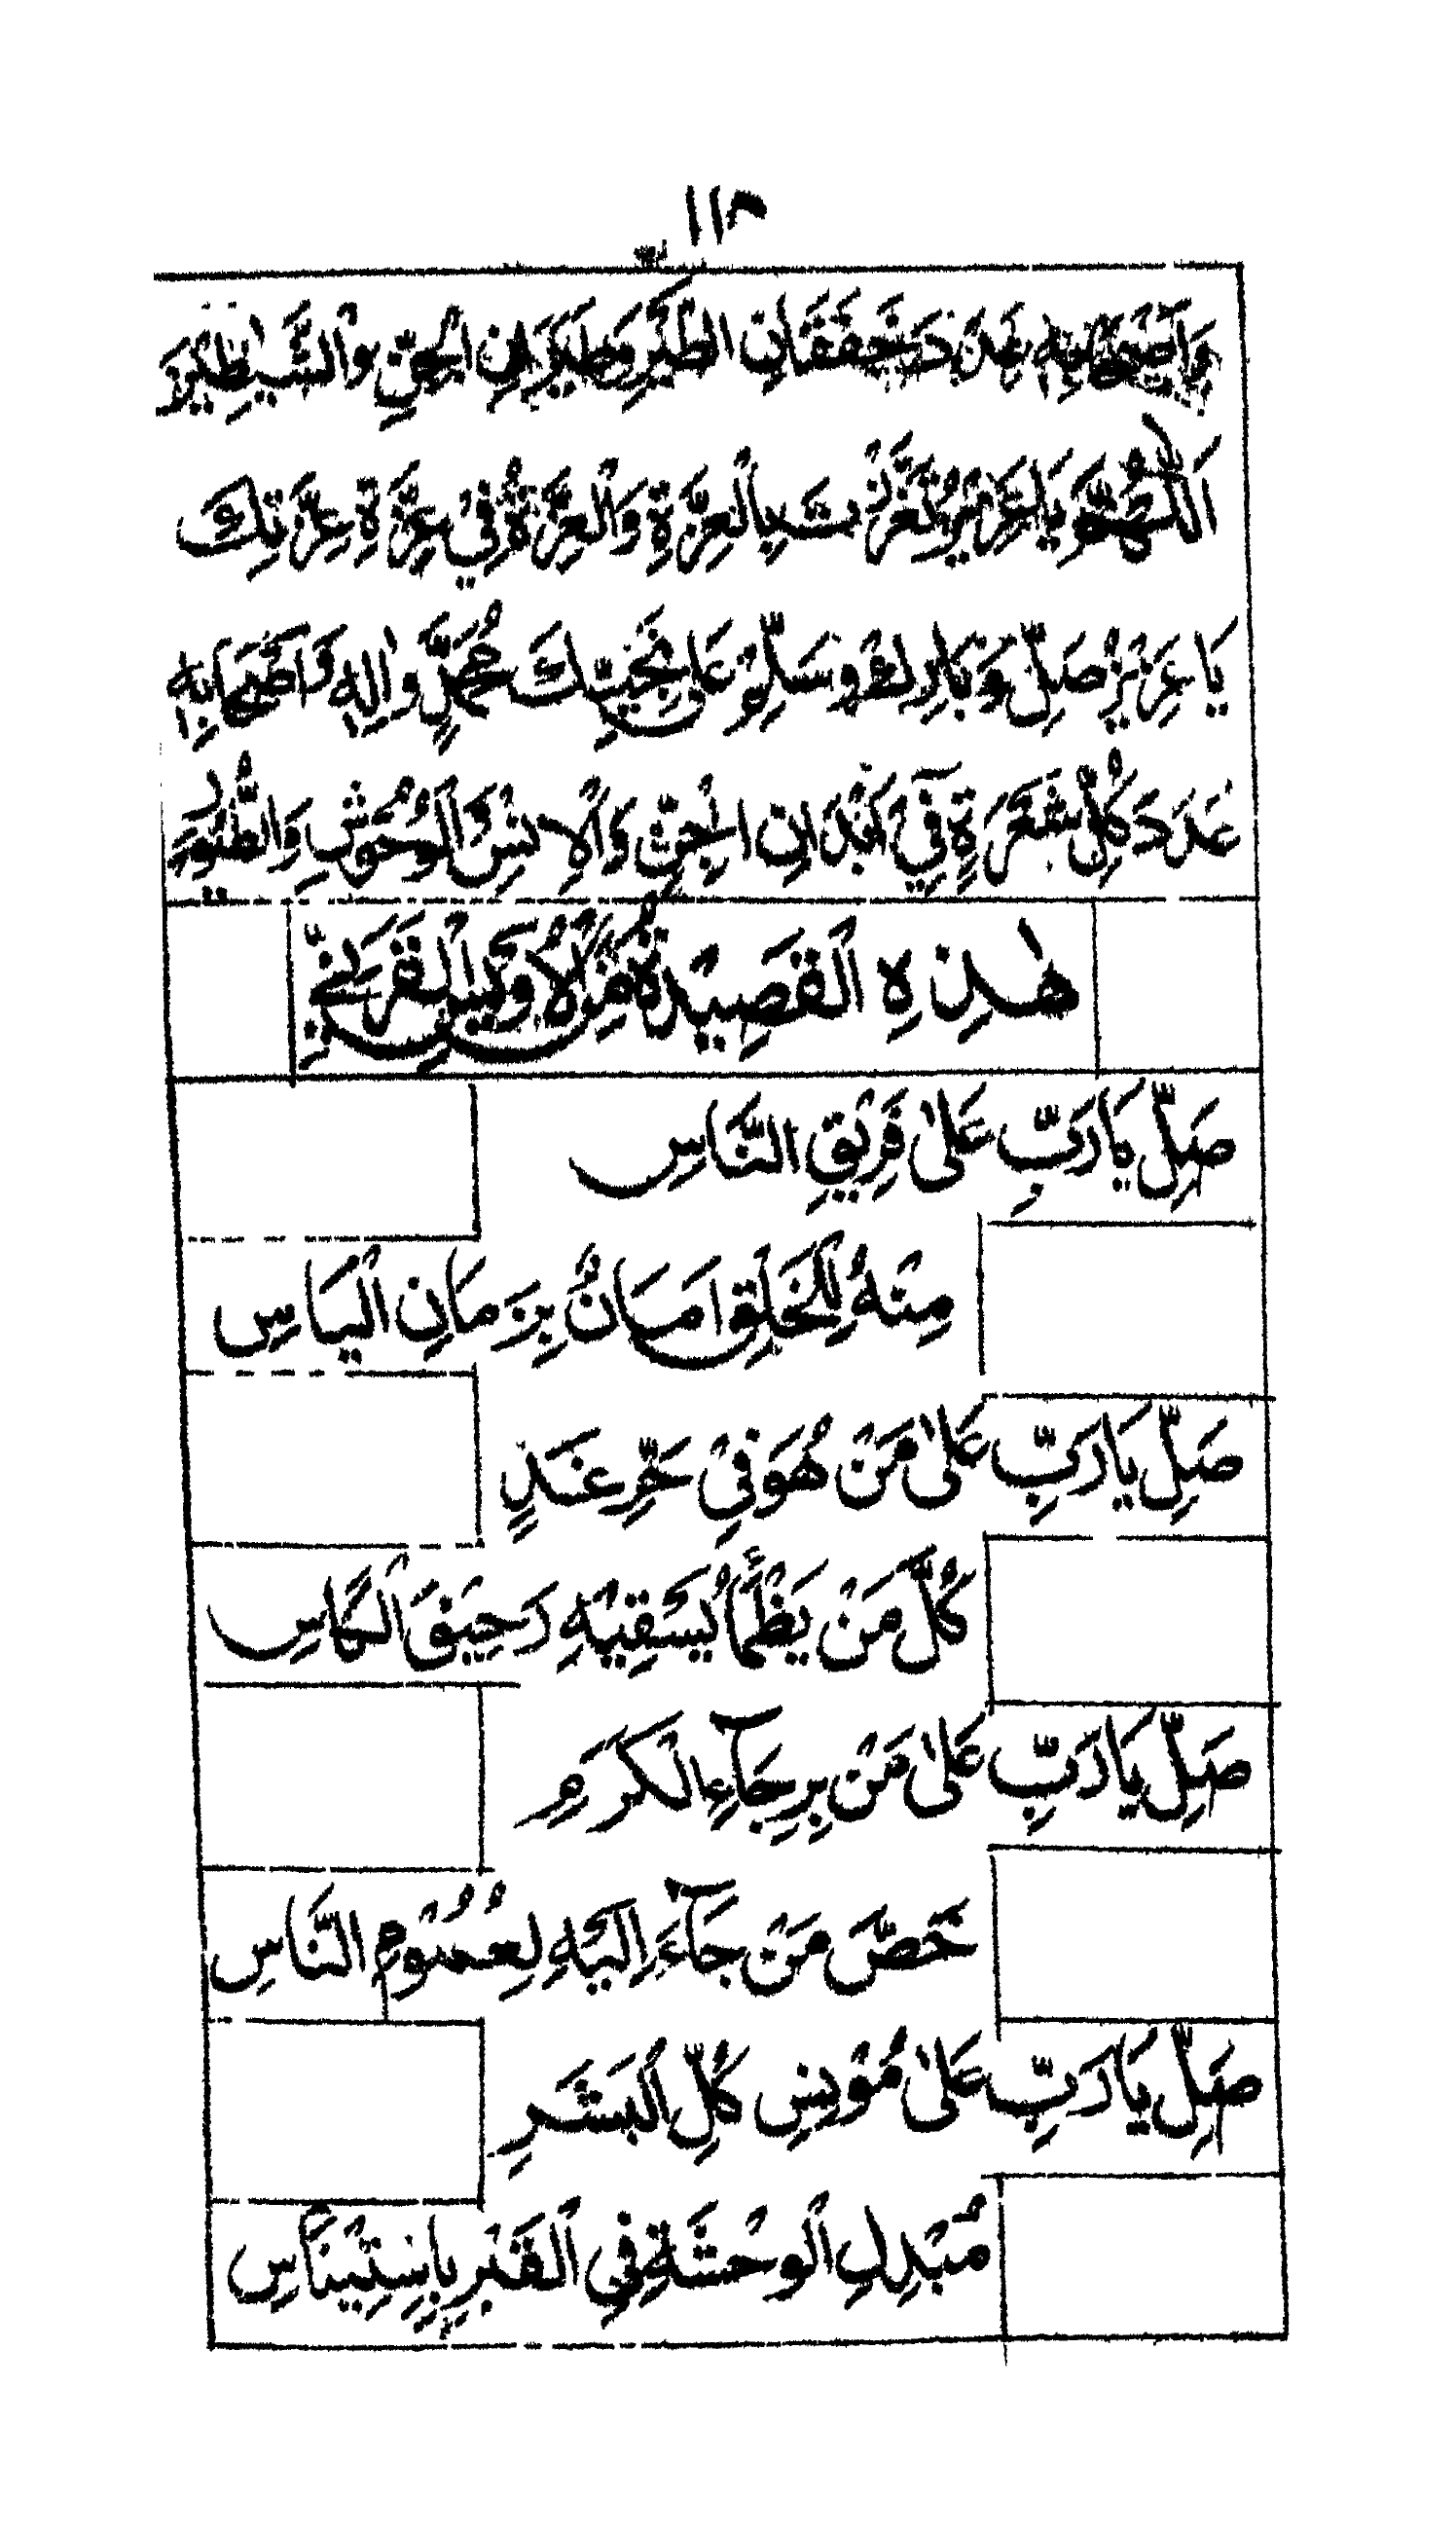 ١١٢
وَأَصْحَابِهِ عَدَدَ خَفَقَانِ الطَّيْرِ وَطَيَرَانِ الْجِنِّ وَالشَّيٰطِيْنَ
اَللّٰهُمَّ يَا عَزِيْزُ تَعَزَّزْتَ بِالْعِزَّةِ وَالْعِزَّةُ فِيْ عِزَّةِ عِزَّتِكَ
يَا عَزِيْزُ صَلِّ وَبَارِكْ وَسَلِّمْ عَلٰى نَجِيِّكَ مُحَمَّدٍ وَاٰلِهٖ وَاَصْحَابِهٖ
عَدَدَ كُلِّ شَعْرَةٍ فِيْٓ اَبْدَانِ الْجِنِّ وَالْاِنْسِ وَالْوُحُوْشِ وَالطُّيُوْرِ
هٰذِهِ الْقَصِيْدَةُ مِنَ الْاُوَيْسِ الْقَرَنِيِّ
صَلِّ يَا رَبِّ عَلٰى فَرِيْقِ النَّاسِ
مِنْهُ لِلْخَلْقِ اَمَانٌ بِزَمَانِ الْيَاسِ
صَلِّ يَا رَبِّ عَلٰى مَنْ هُوَ فِيْ حَرِّ غَدٍ
كُلَّ مَنْ يَظْمَأُ يُسْقِيْهِ رَحِيْقَ الْكَاسِ
صَلِّ يَا رَبِّ عَلٰى مَنْ بِرِجَآءِ الْكَرَمِ
خَصَّ مَنْ جَآءَ اِلَيْهِ لِعُمُوْمِ النَّاسِ
صَلِّ يَا رَبِّ عَلٰى مُوْنِسِ كُلِّ الْبَشَرِ
مُبْدِلِ الْوَحْشَةِ فِي الْقَبْرِ بِاِسْتِيْنَاسِ